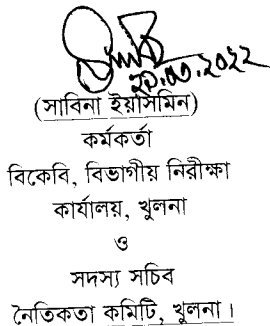 ২০.০৩.২০২২
(সাবিনা ইয়াসিমিন)
কর্মকর্তা
বিকেবি, বিভাগীয় নিরীক্ষা
কার্যালয়, খুলনা
ও
সদস্য সচিব
নৈতিকতা কমিটি, খুলনা।